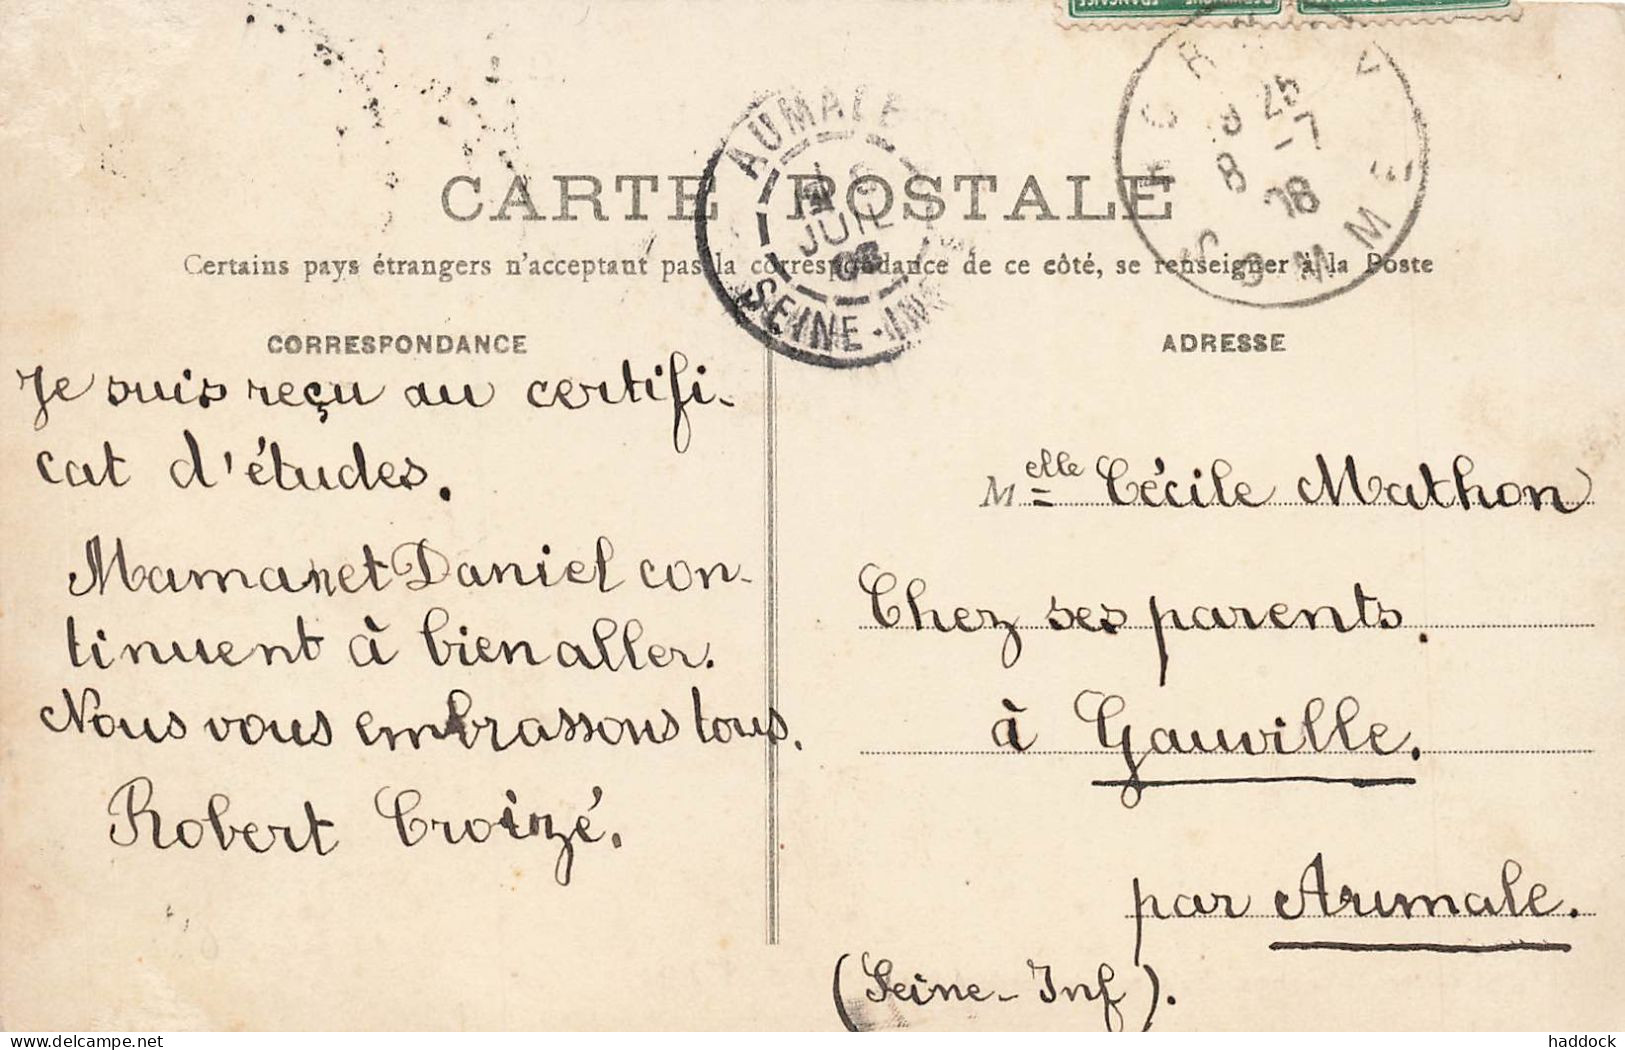 CARTE POSTALE
Certains pays étrangers n'acceptant pas la correspondance de ce côté, se renseigner à la Poste
AUMALE
JUIL
08
SEINE-INF
8 -7
08
SOMME
CORRESPONDANCE
Je suis reçu au certifi-
cat d'études.
Maman et Daniel con-
tinuent à bien aller.
Nous vous embrassons tous.
Robert Croizé.
ADRESSE
Melle Cécile Mathon
Chez ses parents.
à Gauville.
par Aumale.
(Seine-Inf).
delcampe.net
haddock